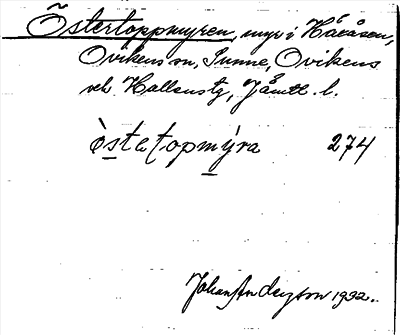 Östertoppmyren, myr i Håråsen,
Ovikens sn, Sunne, Ovikens
och Hallens tg, Jämtl. l.
òstetopmýra 274
Johan Anderzson 1932.